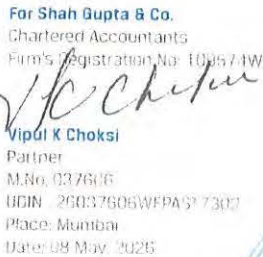 For Shah Gupta & Co.
Chartered Accountants
Firm's Registration No: 109574W
V K Choksi
Vipul K Choksi
Partner
M.No. 037606
UDIN :
Place: Mumbai
Date: 08 May, 2026